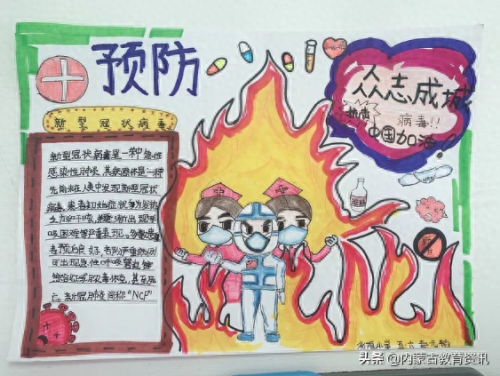 预防
新型冠状病毒
众志成城
抗击
病毒!!
中国加油!
新型冠状病毒是一种急性
感染性肺炎,其病原体是一种
先前未在人类中发现新型冠状
病毒,患者初始症状多为发热
乏力和干咳,并逐渐出现呼
吸困难等严重表现。多数患
者预后良好,
可出现急性
亡。新冠肺炎简称"NCP"
头条@内蒙古教育资讯